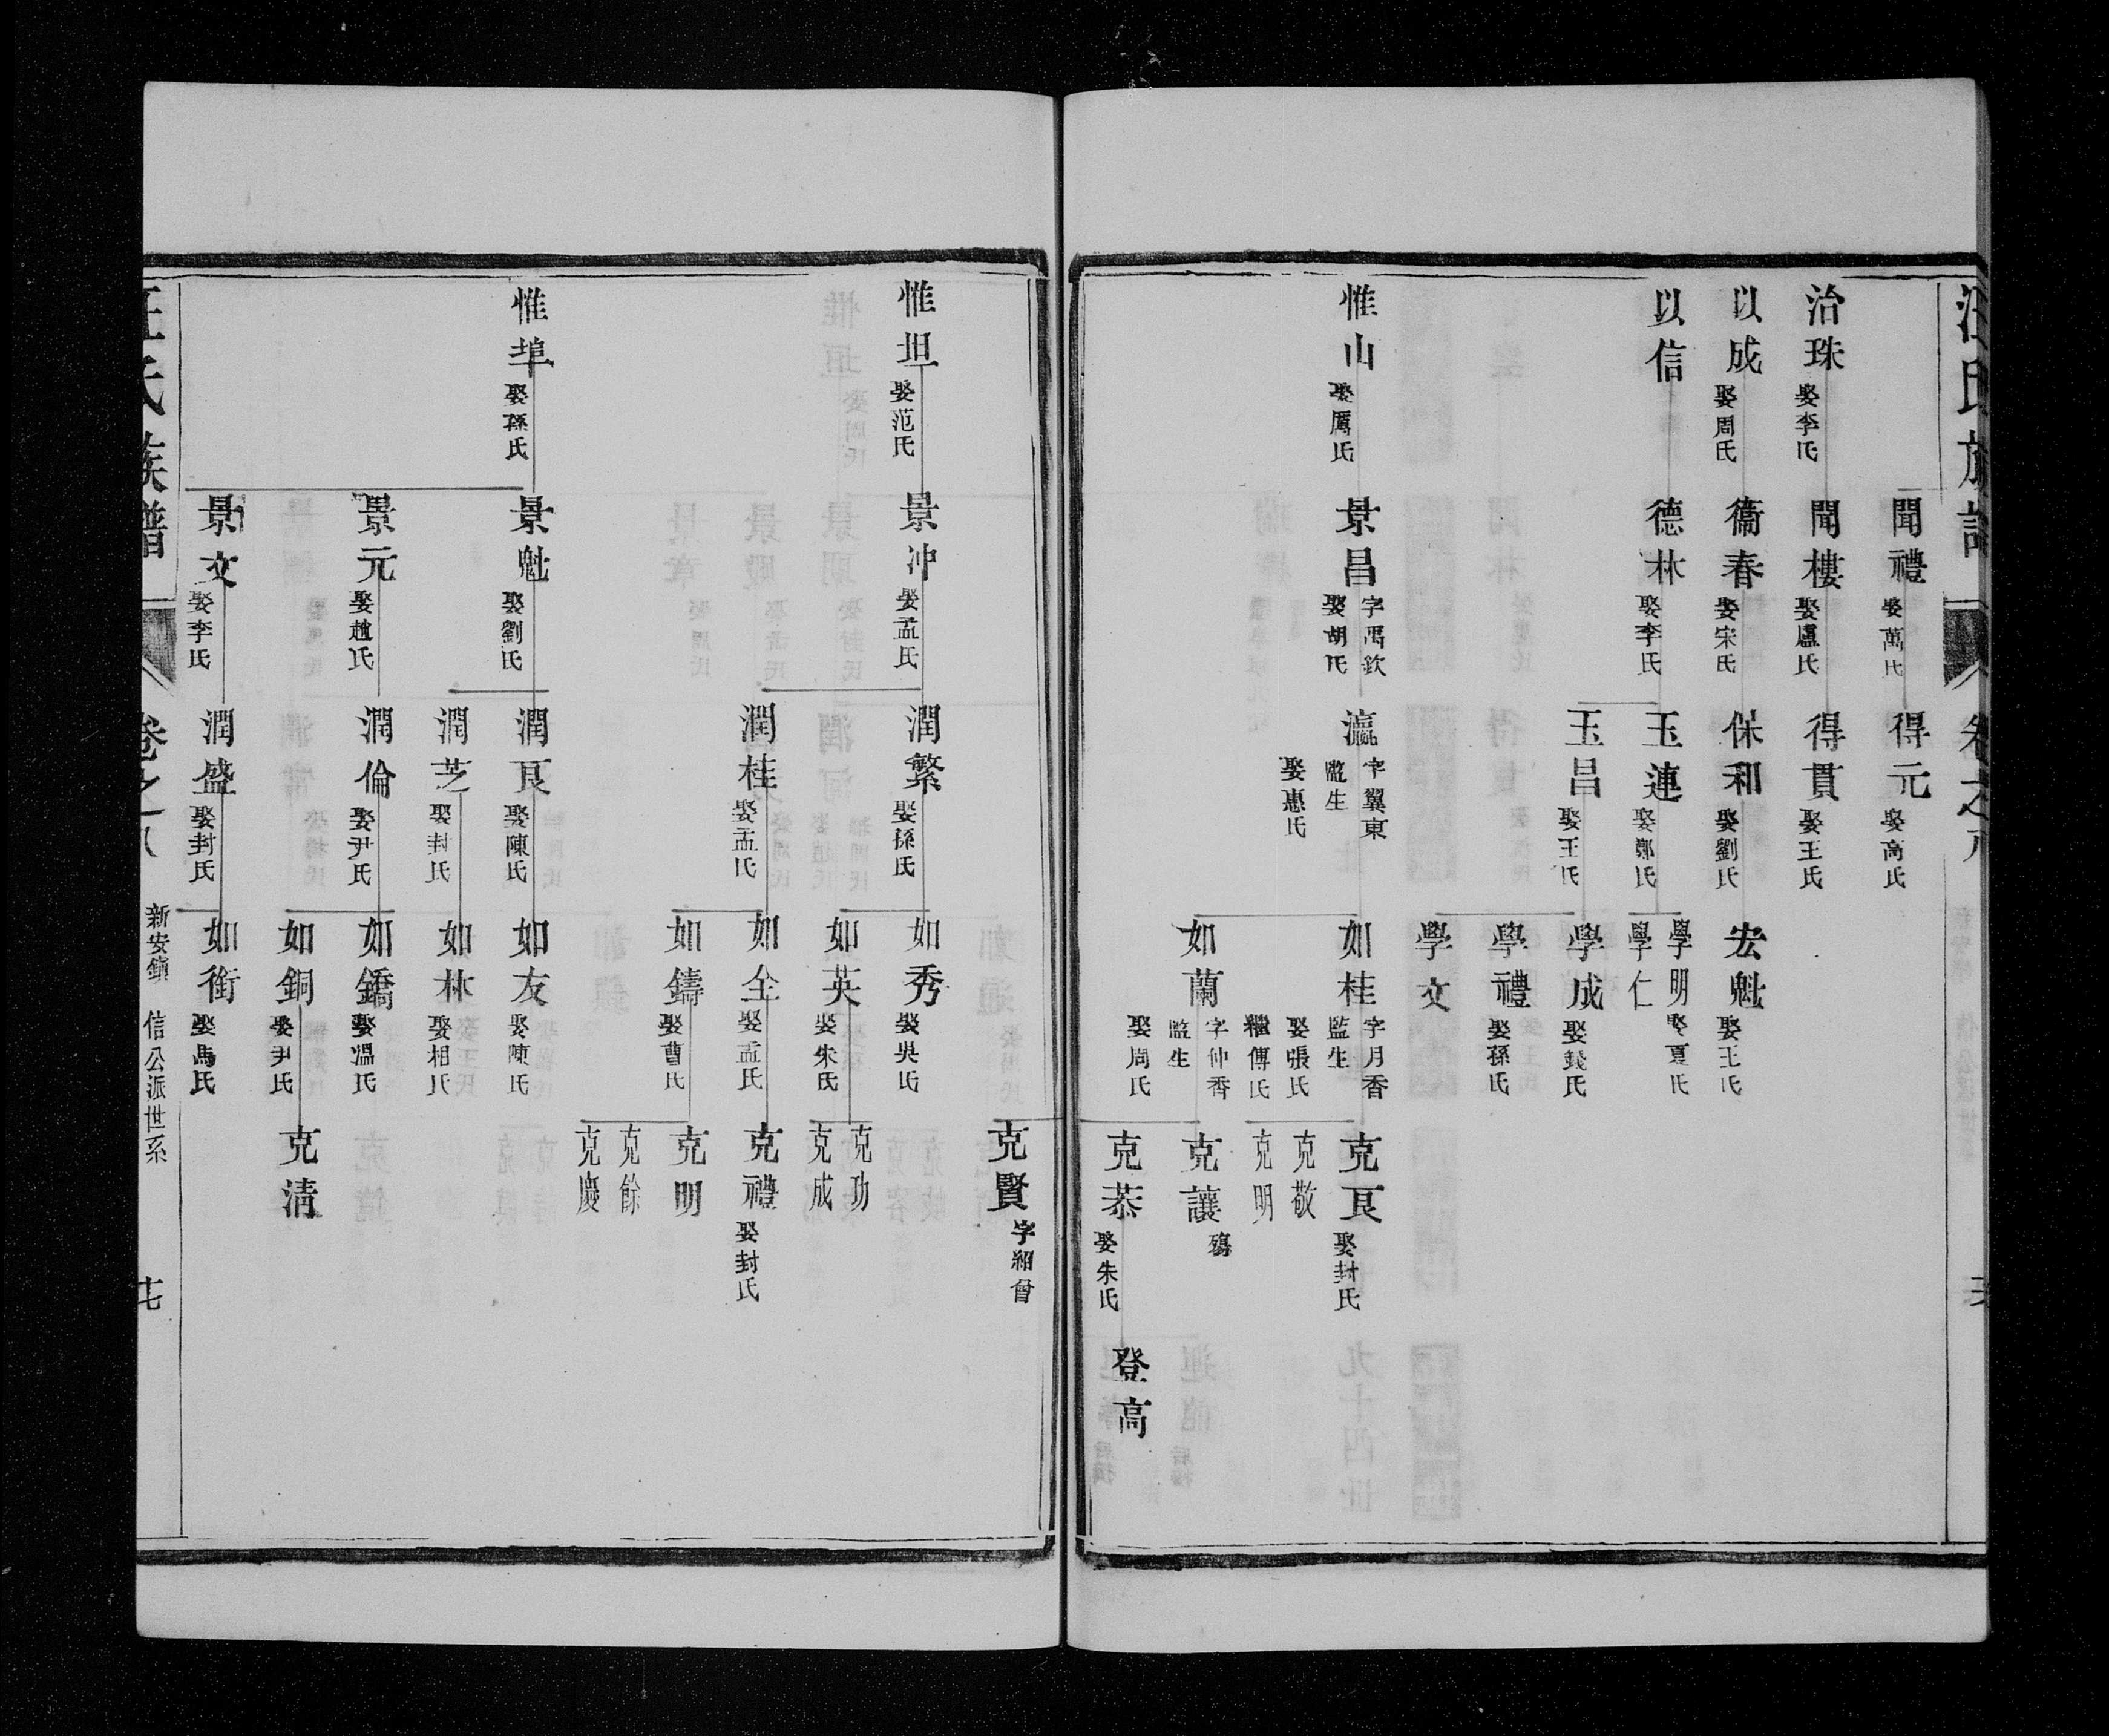 汪氏族譜
卷之八
聞禮 娶萬氏
得元 娶高氏
治珠 娶李氏
聞樓 娶盧氏
得貫 娶王氏
以成 娶周氏
衞春 娶宋氏
保和 娶劉氏
宏魁 娶王氏
以信
德林 娶李氏
玉連 娶鄭氏
學明 娶夏氏
學仁
玉昌 娶王氏
學成 娶錢氏
學禮 娶孫氏
學文
惟山 娶厲氏
景昌 字禹欽 娶胡氏
瀛 字翼東 監生 娶惠氏
如桂 字月香 監生 娶張氏 繼傅氏
克艮 娶封氏
克敬
克明
如蘭 字仲香 監生 娶周氏
克讓 殤
克恭 娶朱氏
登高
克賢 字紹曾
惟坦 娶范氏
景冲 娶孟氏
潤繁 娶孫氏
如秀 娶吳氏
如英 娶朱氏
克功
克成
潤桂 娶孟氏
如全 娶孟氏
克禮 娶封氏
如鑄 娶曹氏
克明
克餘
克慶
惟埠 娶孫氏
景魁 娶劉氏
潤艮 娶陳氏
如友 娶陳氏
潤芝 娶封氏
如林 娶相氏
景元 娶趙氏
潤倫 娶尹氏
如鐈 娶溫氏
如銅 娶尹氏
克清
景文 娶李氏
潤盛 娶封氏
如銜 娶馬氏
汪氏族譜
卷之八
新安鎮 信公派世系
十七